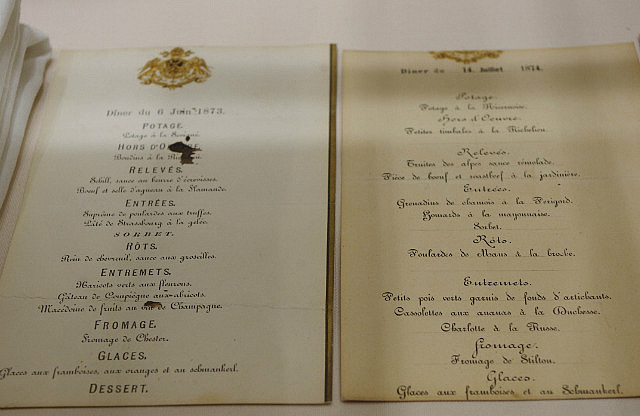 Dîner du 6 Juin 1873.
POTAGE.
Potage à la Sévigné.
HORS D'O
Boudins à la Richelieu.
RELEVÉS.
Schill, sauce au beurre d'écrevisses.
Boeuf et selle d'agneau à la flamande.
ENTRÉES.
Suprême de poulardes aux truffes.
Pâté de Strassbourg à la gelée.
SORBET.
RÔTS.
Rôn de chevreuil, sauce aux groseilles.
ENTREMETS.
Haricots verts aux fleurons.
Gâteau de Compiègne aux abricots.
Macédoine de fruits au vin de Champagne.
FROMAGE.
Fromage de Chester.
GLACES.
Glaces aux framboises, aux oranges et au schmankerl.
DESSERT.
Dîner du 14. Juillet 1874.
Potage.
Potage à la
Hors d'Oeuvre.
Petites timbales à la Richelieu.
Relevés.
Truites des alpes sauce rémolade.
Pièce de boeuf et roastbeef à la jardinière.
Entrées.
Grenadins de chamois à la Perigord.
Homards à la mayonnaise.
Sorbet.
Rôts.
Poulardes du Mans à la broche.
Entremets.
Petits pois verts garnis de fonds d'artichauts.
Cassolettes aux ananas à la Duchesse.
Charlotte à la Russe.
fromage.
Fromage de Stilton.
Glaces.
Glaces aux framboises et au Schmankerl.